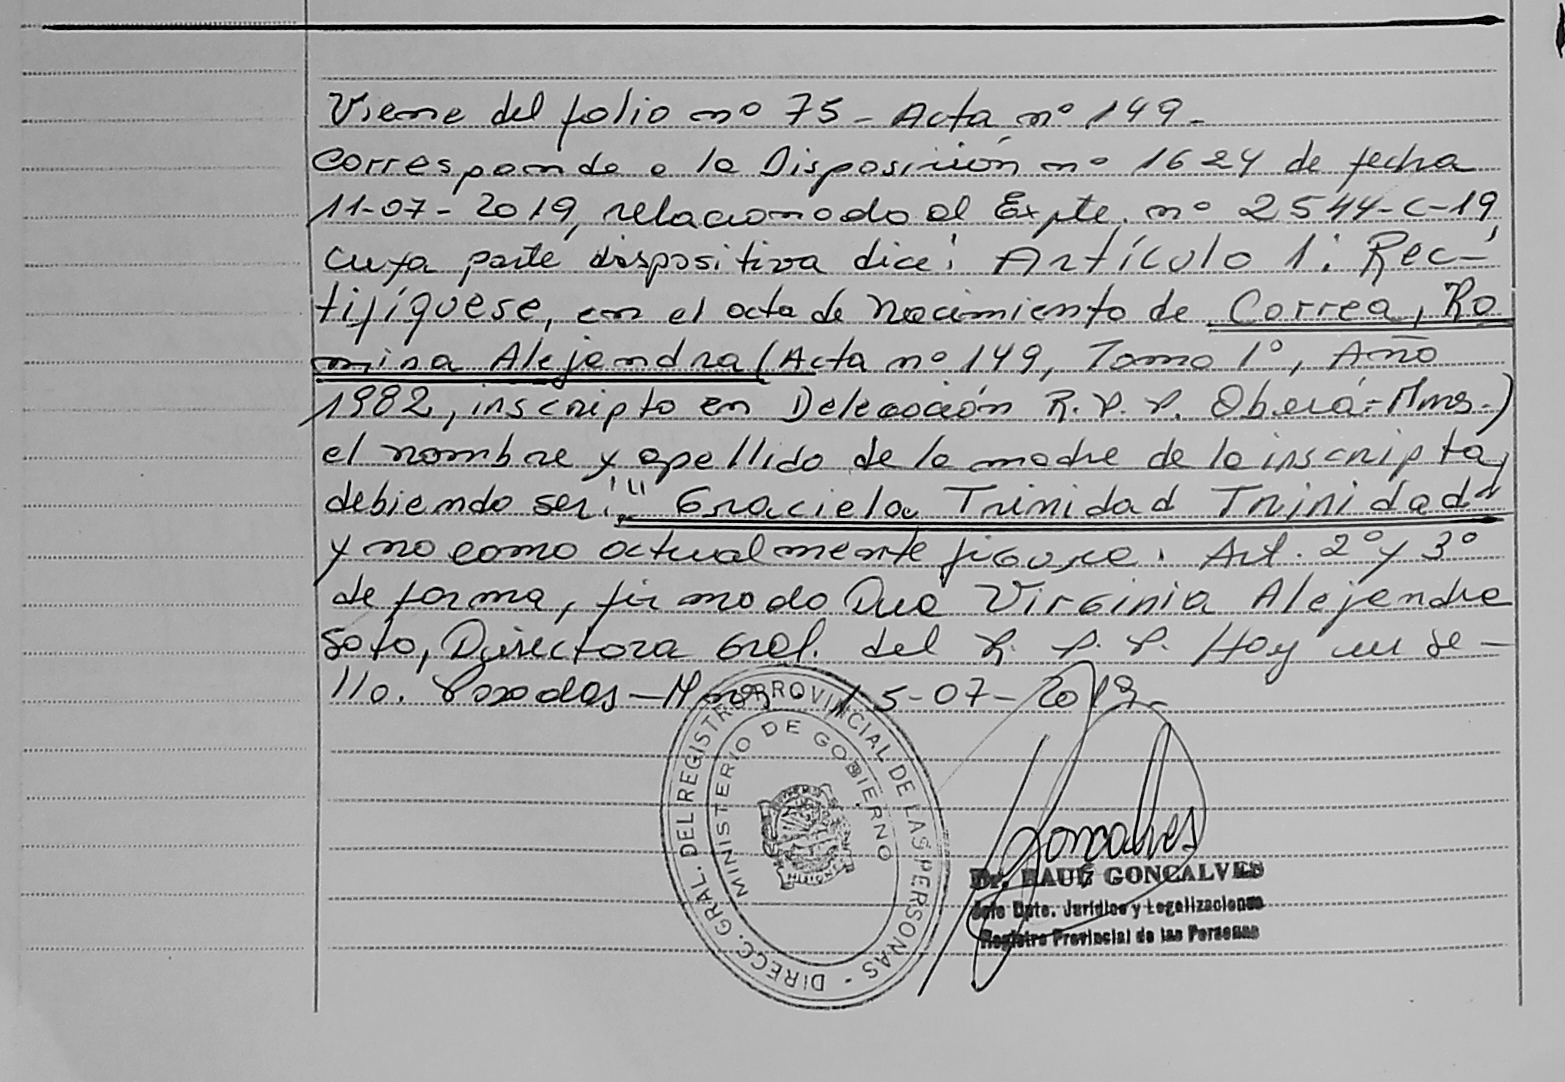 Viene del folio nº 75 - Acta nº 149 -
Corresponde a la Disposición nº 1624 de fecha
11-07-2019, relacionado al Expte. nº 2544-C-19
cuya parte dispositiva dice: Artículo 1: Rec-
tifíquese, en el acta de Nacimiento de Correa, Ro
mina Alejandra (Acta nº 149, Tomo 1º, Año
1982, inscripto en Delegación R.P.P. Oberá-Mnes.)
el nombre y apellido de la madre de la inscripta,
debiendo ser: "Graciela Trinidad Trinidad"
y no como actualmente figura. Art. 2º y 3º
de forma, firmado Dra Virginia Alejandra
Soto, Directora Gral. del R. P. P. Hoy un se-
llo. Posadas-Mnes 15-07-2019-
DIRECC. GRAL. DEL REGISTRO PROVINCIAL DE LAS PERSONAS -
MINISTERIO DE GOBIERNO
MISIONES
Goncalves
Dr. RAUL GONCALVES
Jefe Dpto. Jurídico y Legalizaciones
Registro Provincial de las Personas